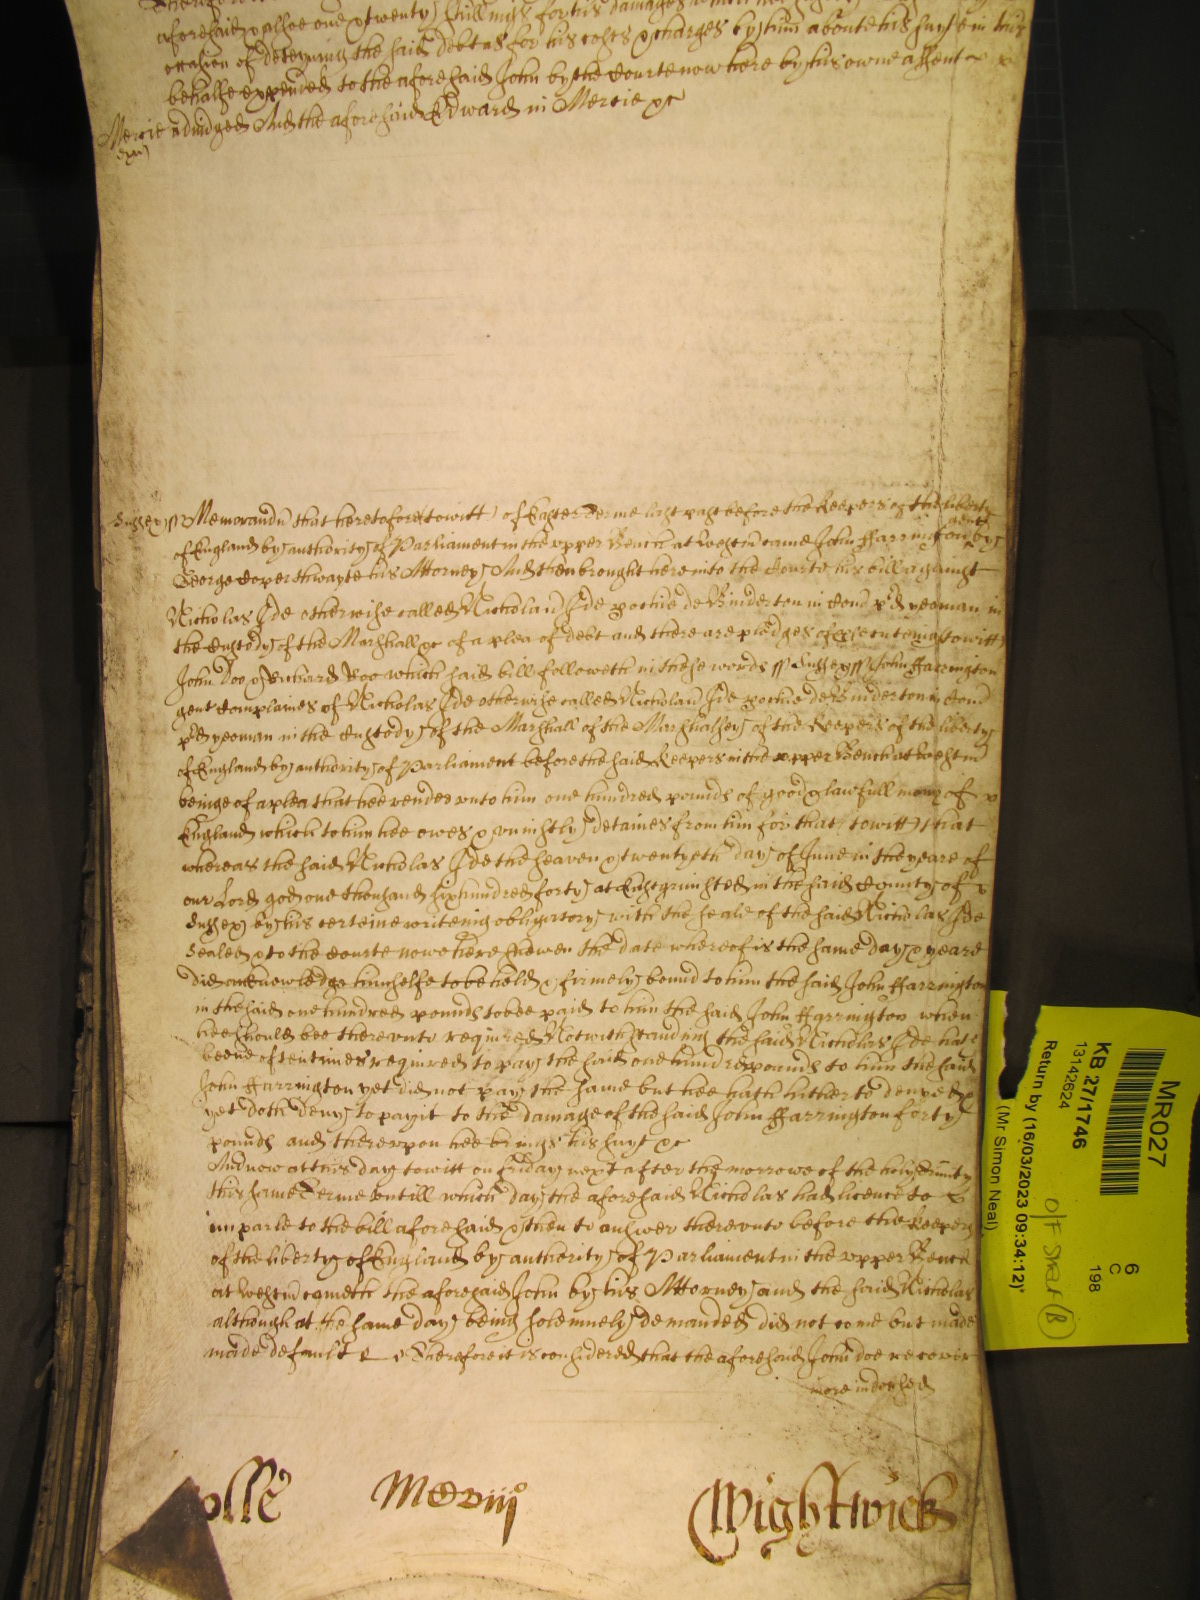 aforesaid & alsoe one & twenty shillings for his damages
occasion of deteyning the said debt as for his costs & charges by him aboute his suyte in this
behalfe expended to the aforesaid John by the Courte now here by his owne assent
Mercie adiudged And the aforesaid Edward in Mercie &c
Sussex ss Memorandu that heretofore (towitt) of Easter Terme last past before the Keepers of the liberty
of England by authority of Parliament in the upper Bench at Westm came John Harrington gent by
George Coperthwayte his Attorney And then brought here into the Courte his bill against
Nicholas Ide otherwise called Nicholau Ide de Binderton in Com pd yeoman in
the Custody of the Marshall &c of a plea of debt and there are pledges of towitt
John Doo & Richard Roo which said bill followeth in these words ss Sussex ss John Harrington
gent Complaines of Nicholas Ide otherwise called Nicholau Ide de Binderton in Com
pd yeoman in the Custody of the Marshall of the Marshalsey of the Keepers of the liberty
of England by authority of Parliament before the said Keepers in the upper Bench at Westm
beinge of a plea that hee render unto him one hundred pounds of good & lawfull mony of
England which to him hee owes & uniustly detaines from him for that (towitt) that
whereas the said Nicholas Ide the seaven & twentyeth day of June in the yeare of
our Lord god one thousand six hundred forty at Eastgrinsted in the said County of
Sussex by his certeine writeing obligatory with the seale of the said Nicholas Ide
Sealed & to the Courte nowe here shewen the date whereof is the same day & yeare
did acknowledge himselfe to be held & firmely bound to him the said John Harrington
in the said one hundred pounds to bee paid to him the said John Harrington when
hee should bee thereunto required Notwithstanding the said Nicholas Ide hath
beene oftentimes required to pay the said one hundred pounds to him the said
John Harrington yet did not pay the same but hee hath hitherto denyed &
yet doth deny to pay it to the damage of the said John Harrington forty
pounds and thereupon hee brings his suyt &c
And now at this day towitt on friday next after the morrowe of the holy Trinity
this same Terme untill which day the aforesaid Nicholas had licence to
imparle to the bill aforesaid & then to answer thereunto before the Keepers
of the liberty of England by authority of Parliament in the upper Bench
at Westm cometh the aforesaid John by his Attorney and the said Nicholas
although at the same day being solemnely demanded did not come but made
made default Therefore it is considered that the aforesaid John doe recover
more indorsed
Wightwick
MR027
6
C
198
KB 27/1746
13142624
Return by (16/03/2023 09:34:12)*
(Mr Simon Neal)